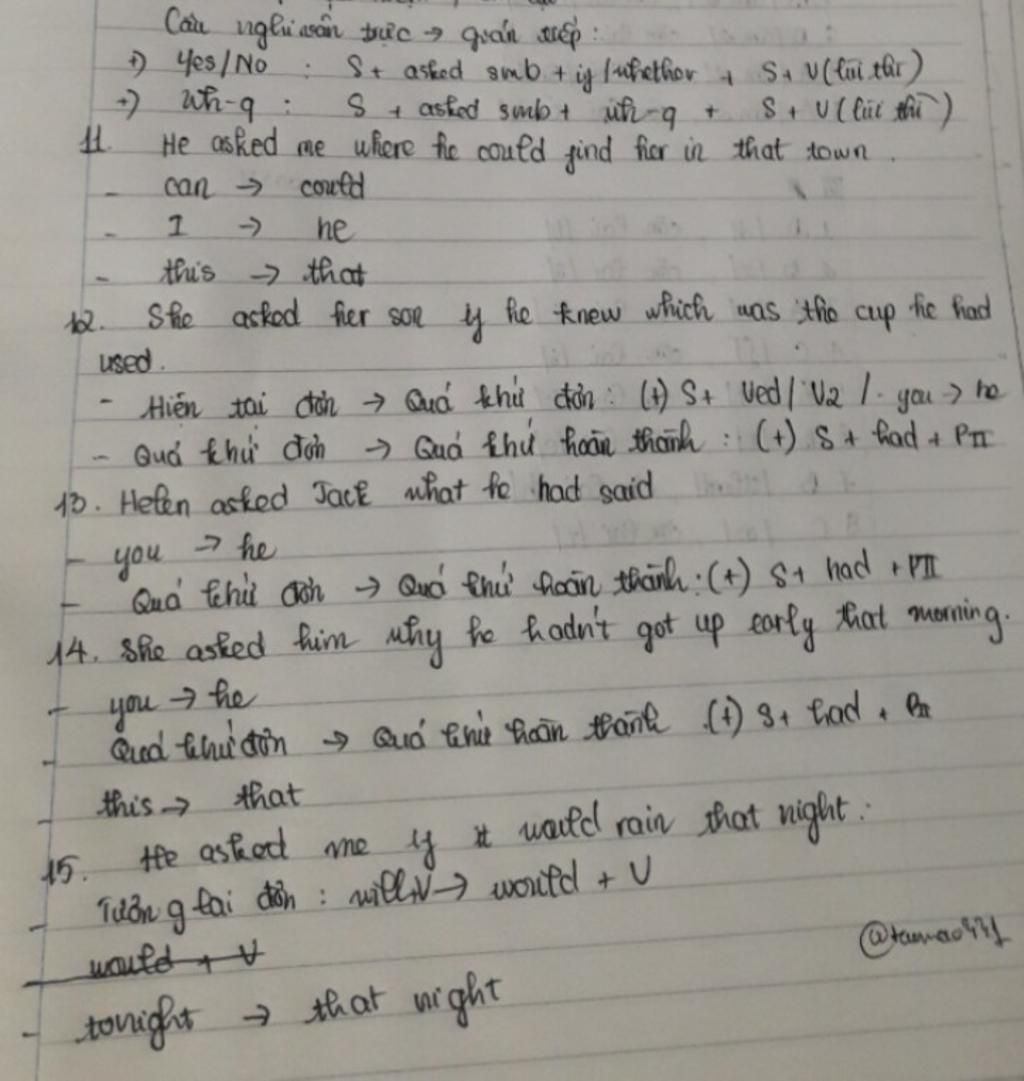 Câu nghi vấn trực → gián tiếp :
+) Yes/No : S + asked smb + if/whether + S + V (lùi thì)
+) Wh-q : S + asked smb + wh-q + S + V (lùi thì)
11. He asked me where he could find her in that town.
- can → could
- I → he
- this → that
12. She asked her son if he knew which was the cup he had
used.
- Hiện tại đơn → Quá khứ đơn : (+) S + Ved / V2 / . you → he
- Quá khứ đơn → Quá khứ hoàn thành : (+) S + had + PII
13. Helen asked Jack what he had said
- you → he
- Quá khứ đơn → Quá khứ hoàn thành : (+) S + had + PII
14. She asked him why he hadn't got up early that morning.
- you → he
- Quá khứ đơn → Quá khứ hoàn thành (+) S + had + PII
- this → that
15. He asked me if it would rain that night.
- Tương lai đơn : will+V → would + V
would + V
- tonight → that night